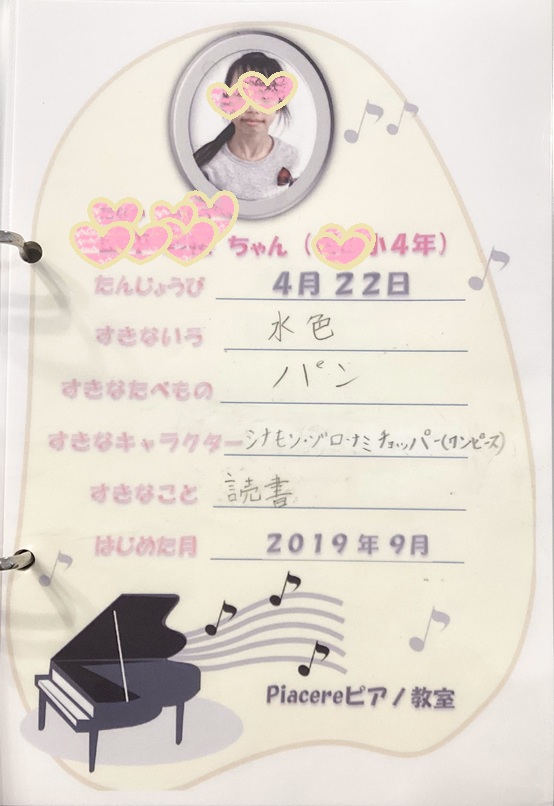 ちゃん（小４年）
たんじょうび ４月２２日
すきないろ 水色
すきなたべもの パン
すきなキャラクター シナモン・ゾロ・ナミ チョッパー(ワンピース)
すきなこと 読書
はじめた月 ２０１９年９月
Piacereピアノ教室